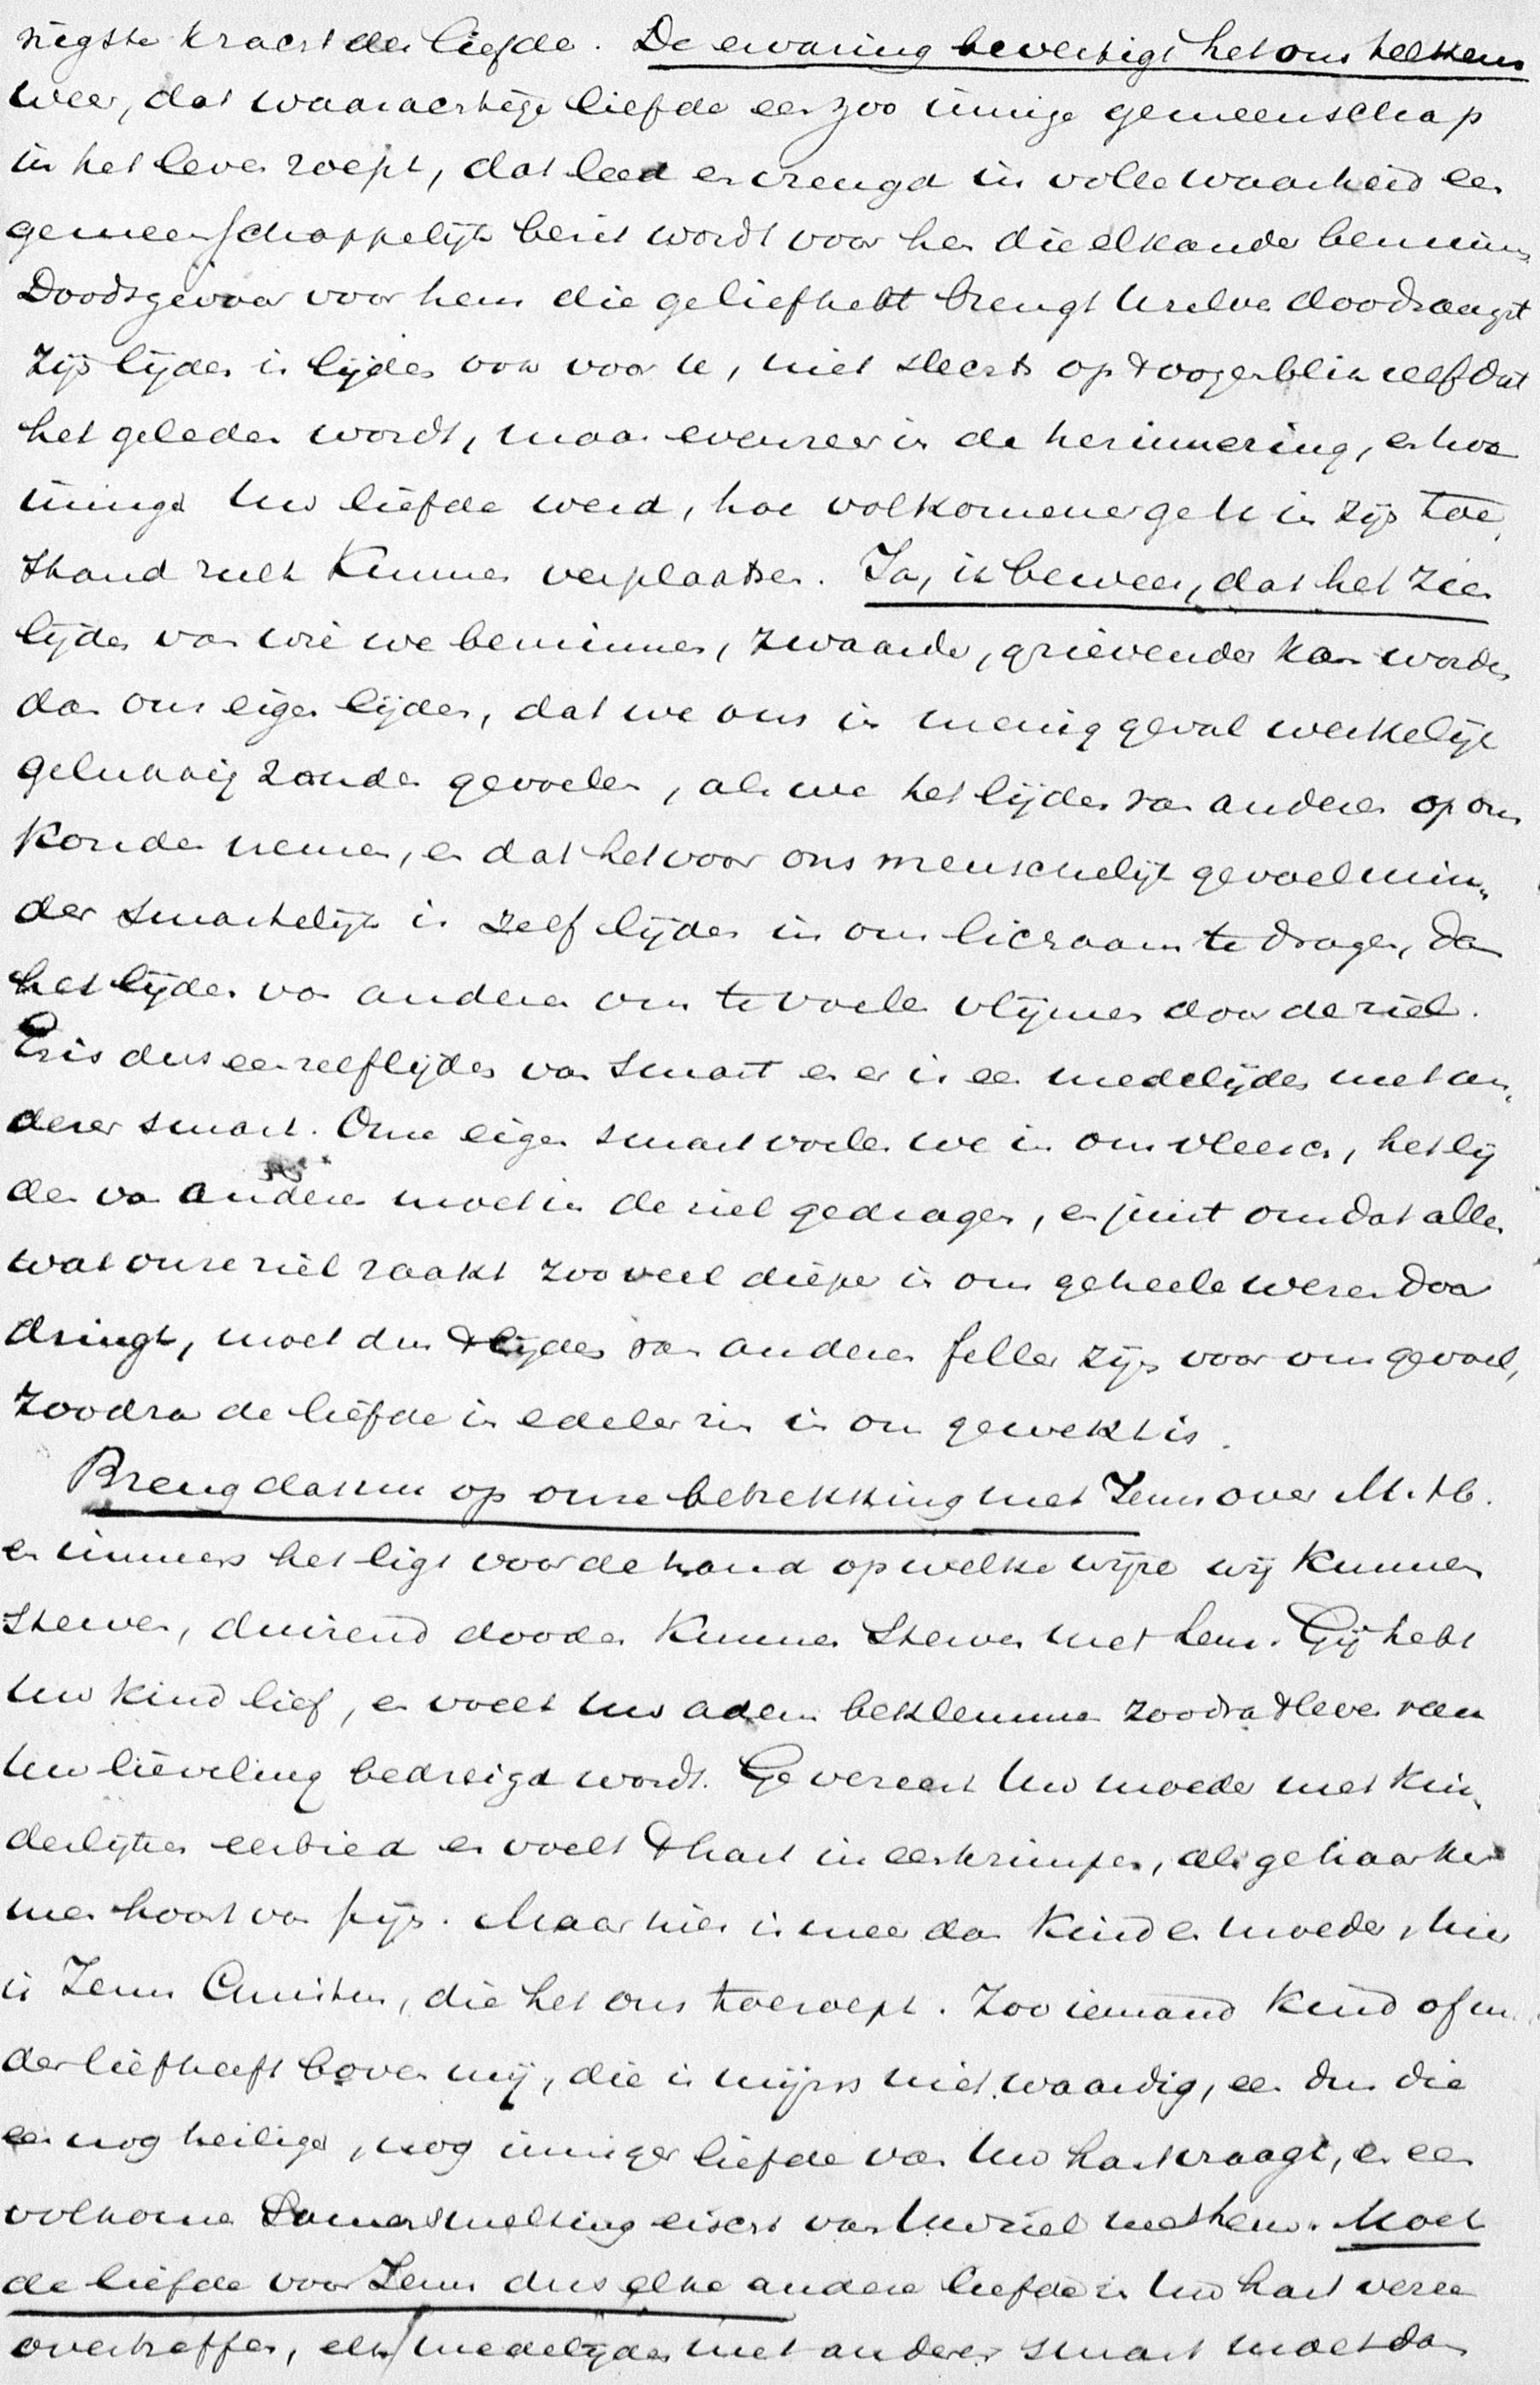 nigste kracht der liefde. De ervaring bevestigt het ons telkens
weer, dat waarachtige liefde een zoo innige gemeenschap
in het leven roept, dat leed en vreugd in volle waarheid een
gemeenschappelijk bezit wordt voor hen die elkander beminnen
Doodsgevaar voor hem die ge liefhebt brengt Uzelven doodsangst
Zijn lijden is lijden ook voor U, niet slechts op 't oogenblik zelf dat
het geleden wordt, maar evenzeer in de herinnering, en hoe
inniger Uw liefde werd, hoe volkomener ge U in zijn toe-
stand zult kunnen verplaatsen. Ja, ik beweer, dat het zien
lijden van wie we beminnen, zwaarder, grievender kan worden
dan ons eigen lijden, dat we ons in menig geval werkelijk
gelukkig zouden gevoelen, als we het lijden van anderen op ons
konden nemen, en dat het voor ons menschelijk gevoel min-
der smartelijk is zelf lijden in ons lichaam te dragen, dan
het lijden van anderen ons te voelen vlijmen door de ziel.
Er is dus een zelflijden van smart en er is een medelijden met an-
derer smart. Onze eigen smart voelen we in ons vleesch, het lij
den van anderen moet in de ziel gedragen, en juist omdat alles
wat onze ziel raakt zooveel dieper in ons geheele wezen door
dringt, moet dus 't lijden van anderen feller zijn voor ons gevoel,
zoodra de liefde in edeler zin in ons gewekt is.
Breng dat nu op onze betrekking met Jezus over M. H.
en immers het ligt voor de hand op welke wijze wij kunnen
sterven, duizend dooden kunnen sterven met hem. Gij hebt
Uw kind lief, en voelt Uw adem beklemmen zoodra 't leven van
Uw lieveling bedreigd wordt. Ge vereert Uw moeder met kin-
derlijken eerbied en voelt 't hart ineenkrimpen, als ge haar ker
men hoort van pijn. Maar hier is meer dan kind en moeder, hier
is Jezus Christus, die het ons toeroept. Zoo iemand kind of
der liefheeft boven mij, die is mijns niet waardig, een dus die
een nog heiliger, nog inniger liefde van Uw hart vraagt, en een
volkomen samensmelting eischt van Uw ziel met hem. Moet
de liefde voor Jezus dus elke andere liefde in Uw hart verre
overtreffen, elk medelijden met anderer smart moet dan